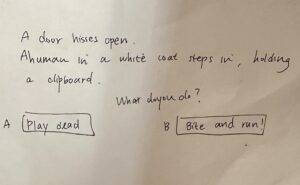 A door hisses open.
A human in a white coat steps in, holding
a clipboard.
What do you do?
A Play dead B Bite and run!